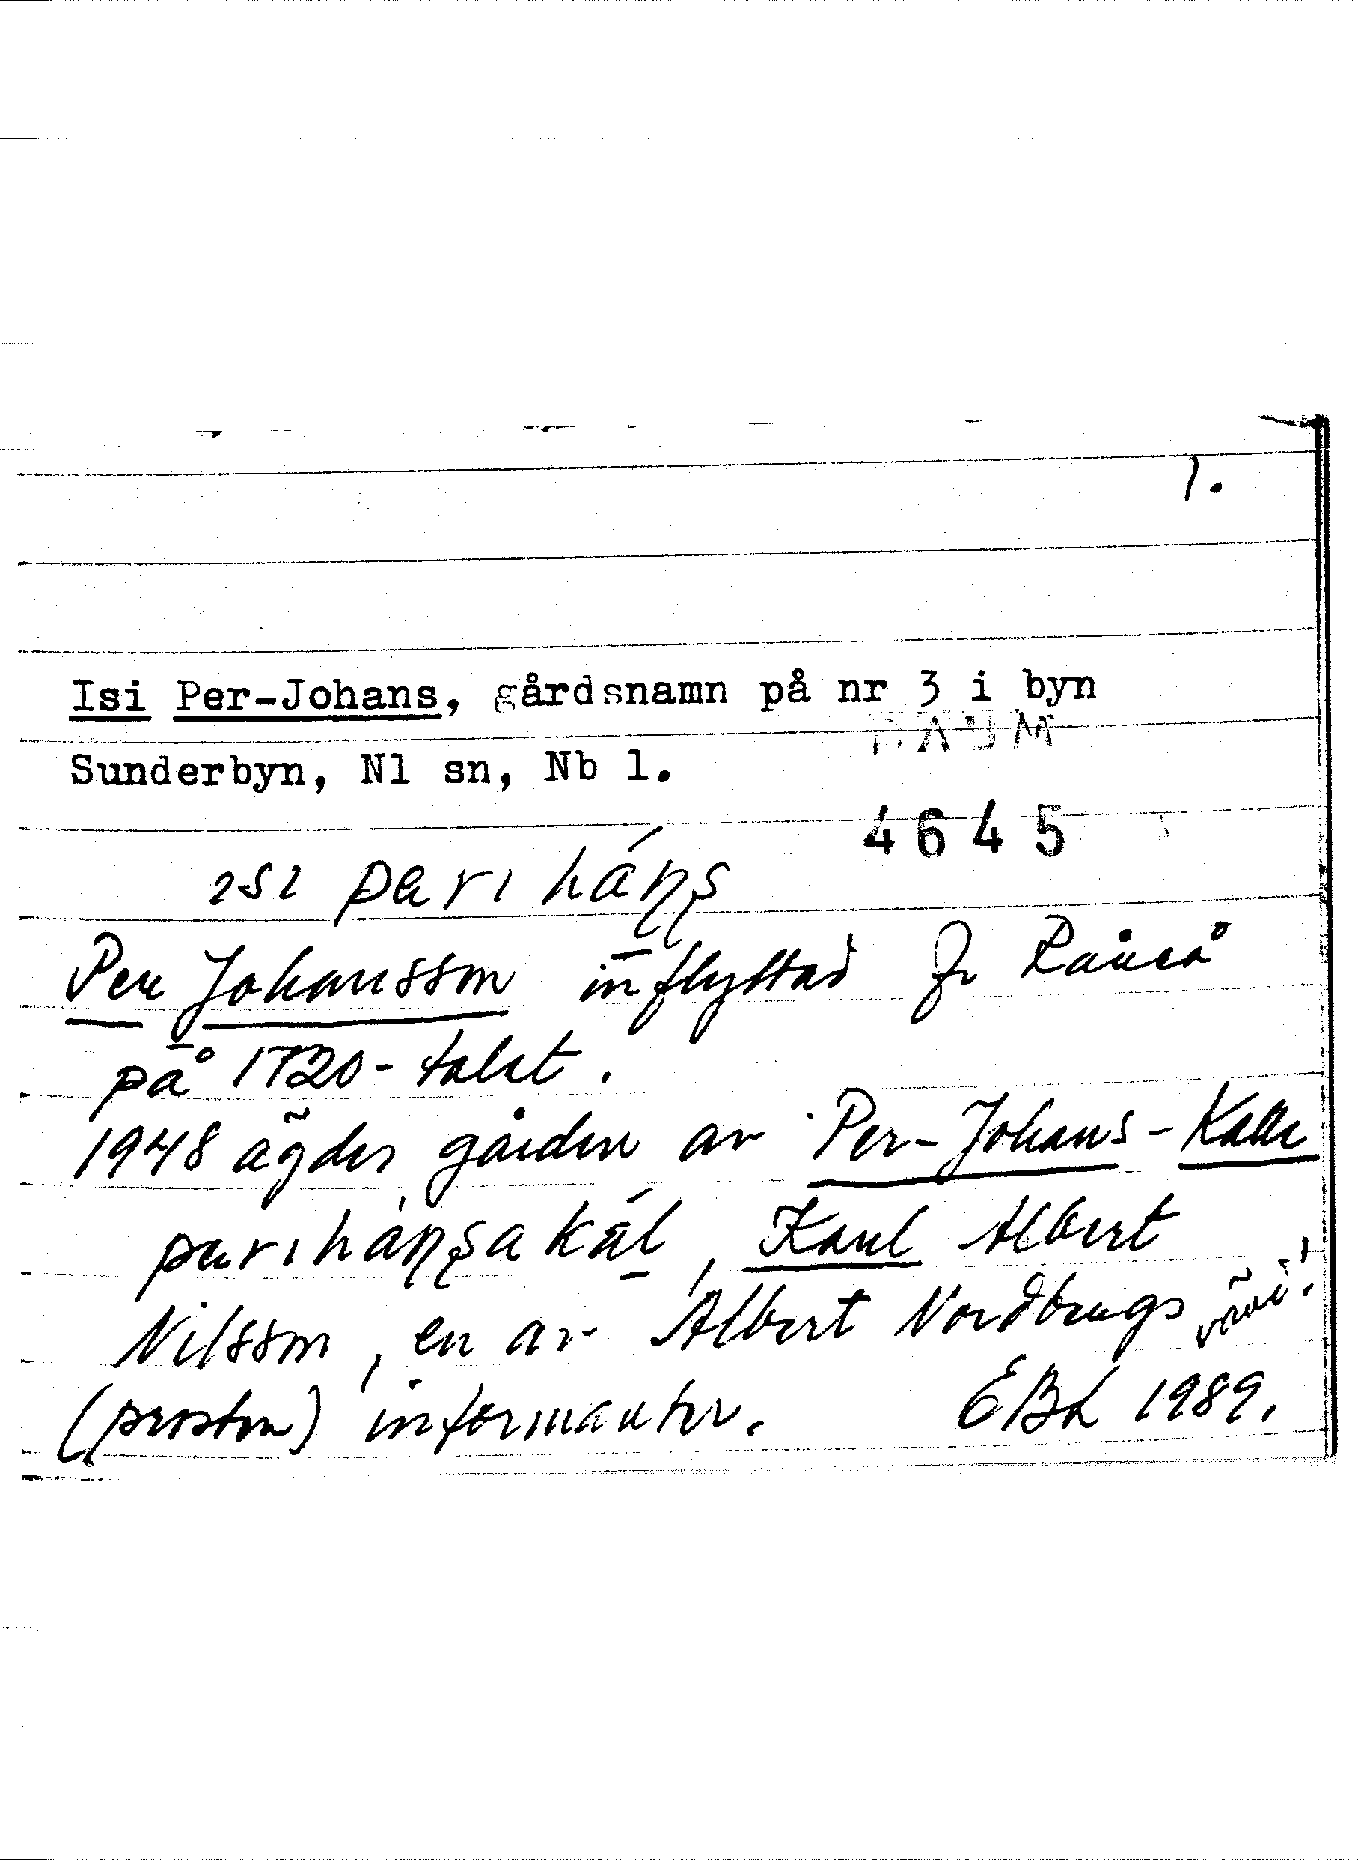 1.
Isi Per-Johans, gårdsnamn på nr 3 i byn
DAUM
Sunderbyn, Nl sn, Nb l.
4645
ısı pærı háṇṣ
Per Johansson inflyttad fr Råneå
på 1720-talet.
1948 ägdes gården av Per-Johans-Kalle
pærıháṇṣa kál, Karl Albert
Nilsson, en av Albert Nordbergs
(prosten) informanter. EBL 1989.